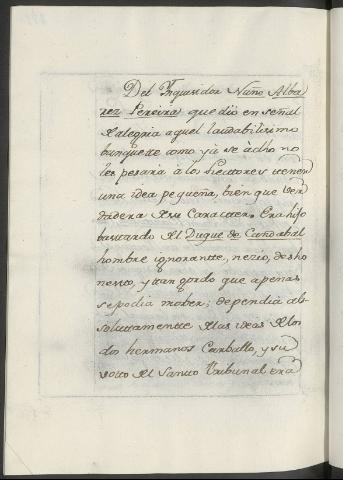 Del Inquisidor Nuno Alba
rez Pereira que dio en señal
d alegria aquel laudabilisimo
banquete como ya se à dho no
les pesarà à los Lectores tener
una idea pequeña, bien que ver
dadera d su Caracter. Era hijo
bastardo dl Duque de Cadabal
hombre ignorantte, necio, desho
nesto, y tan gordo que apenas
se podia mober; dependia ab-
soluttamentte d las ideas d los
dos hermanos Carballo, y su
votto dl Santto Tribunal era